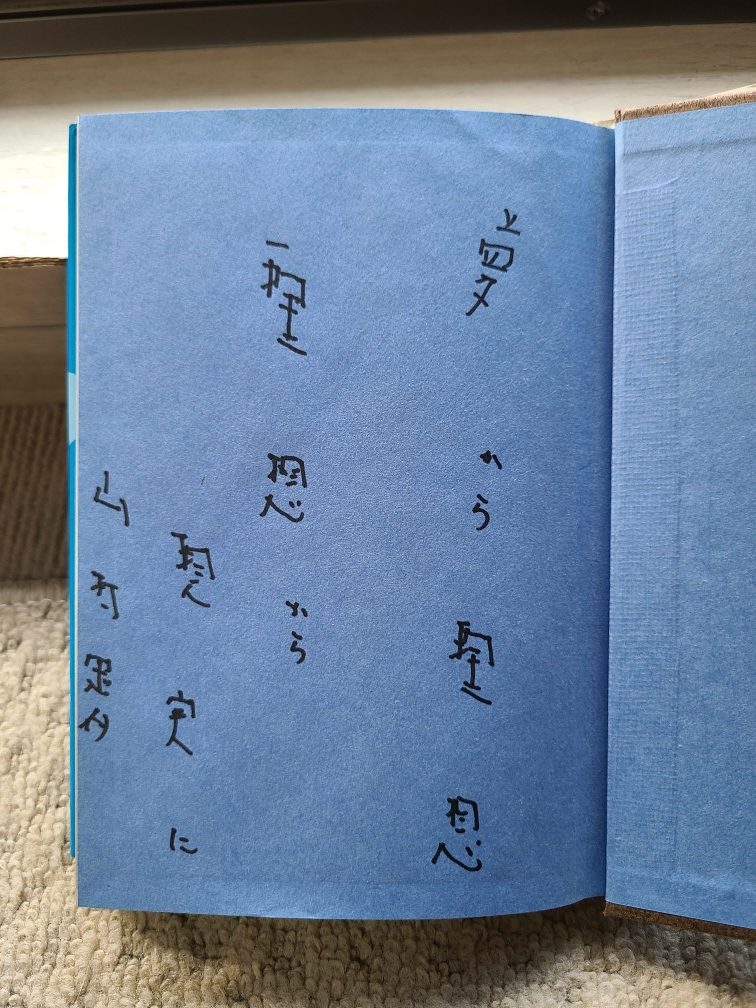 夢から理想
理想から
現実に
山村